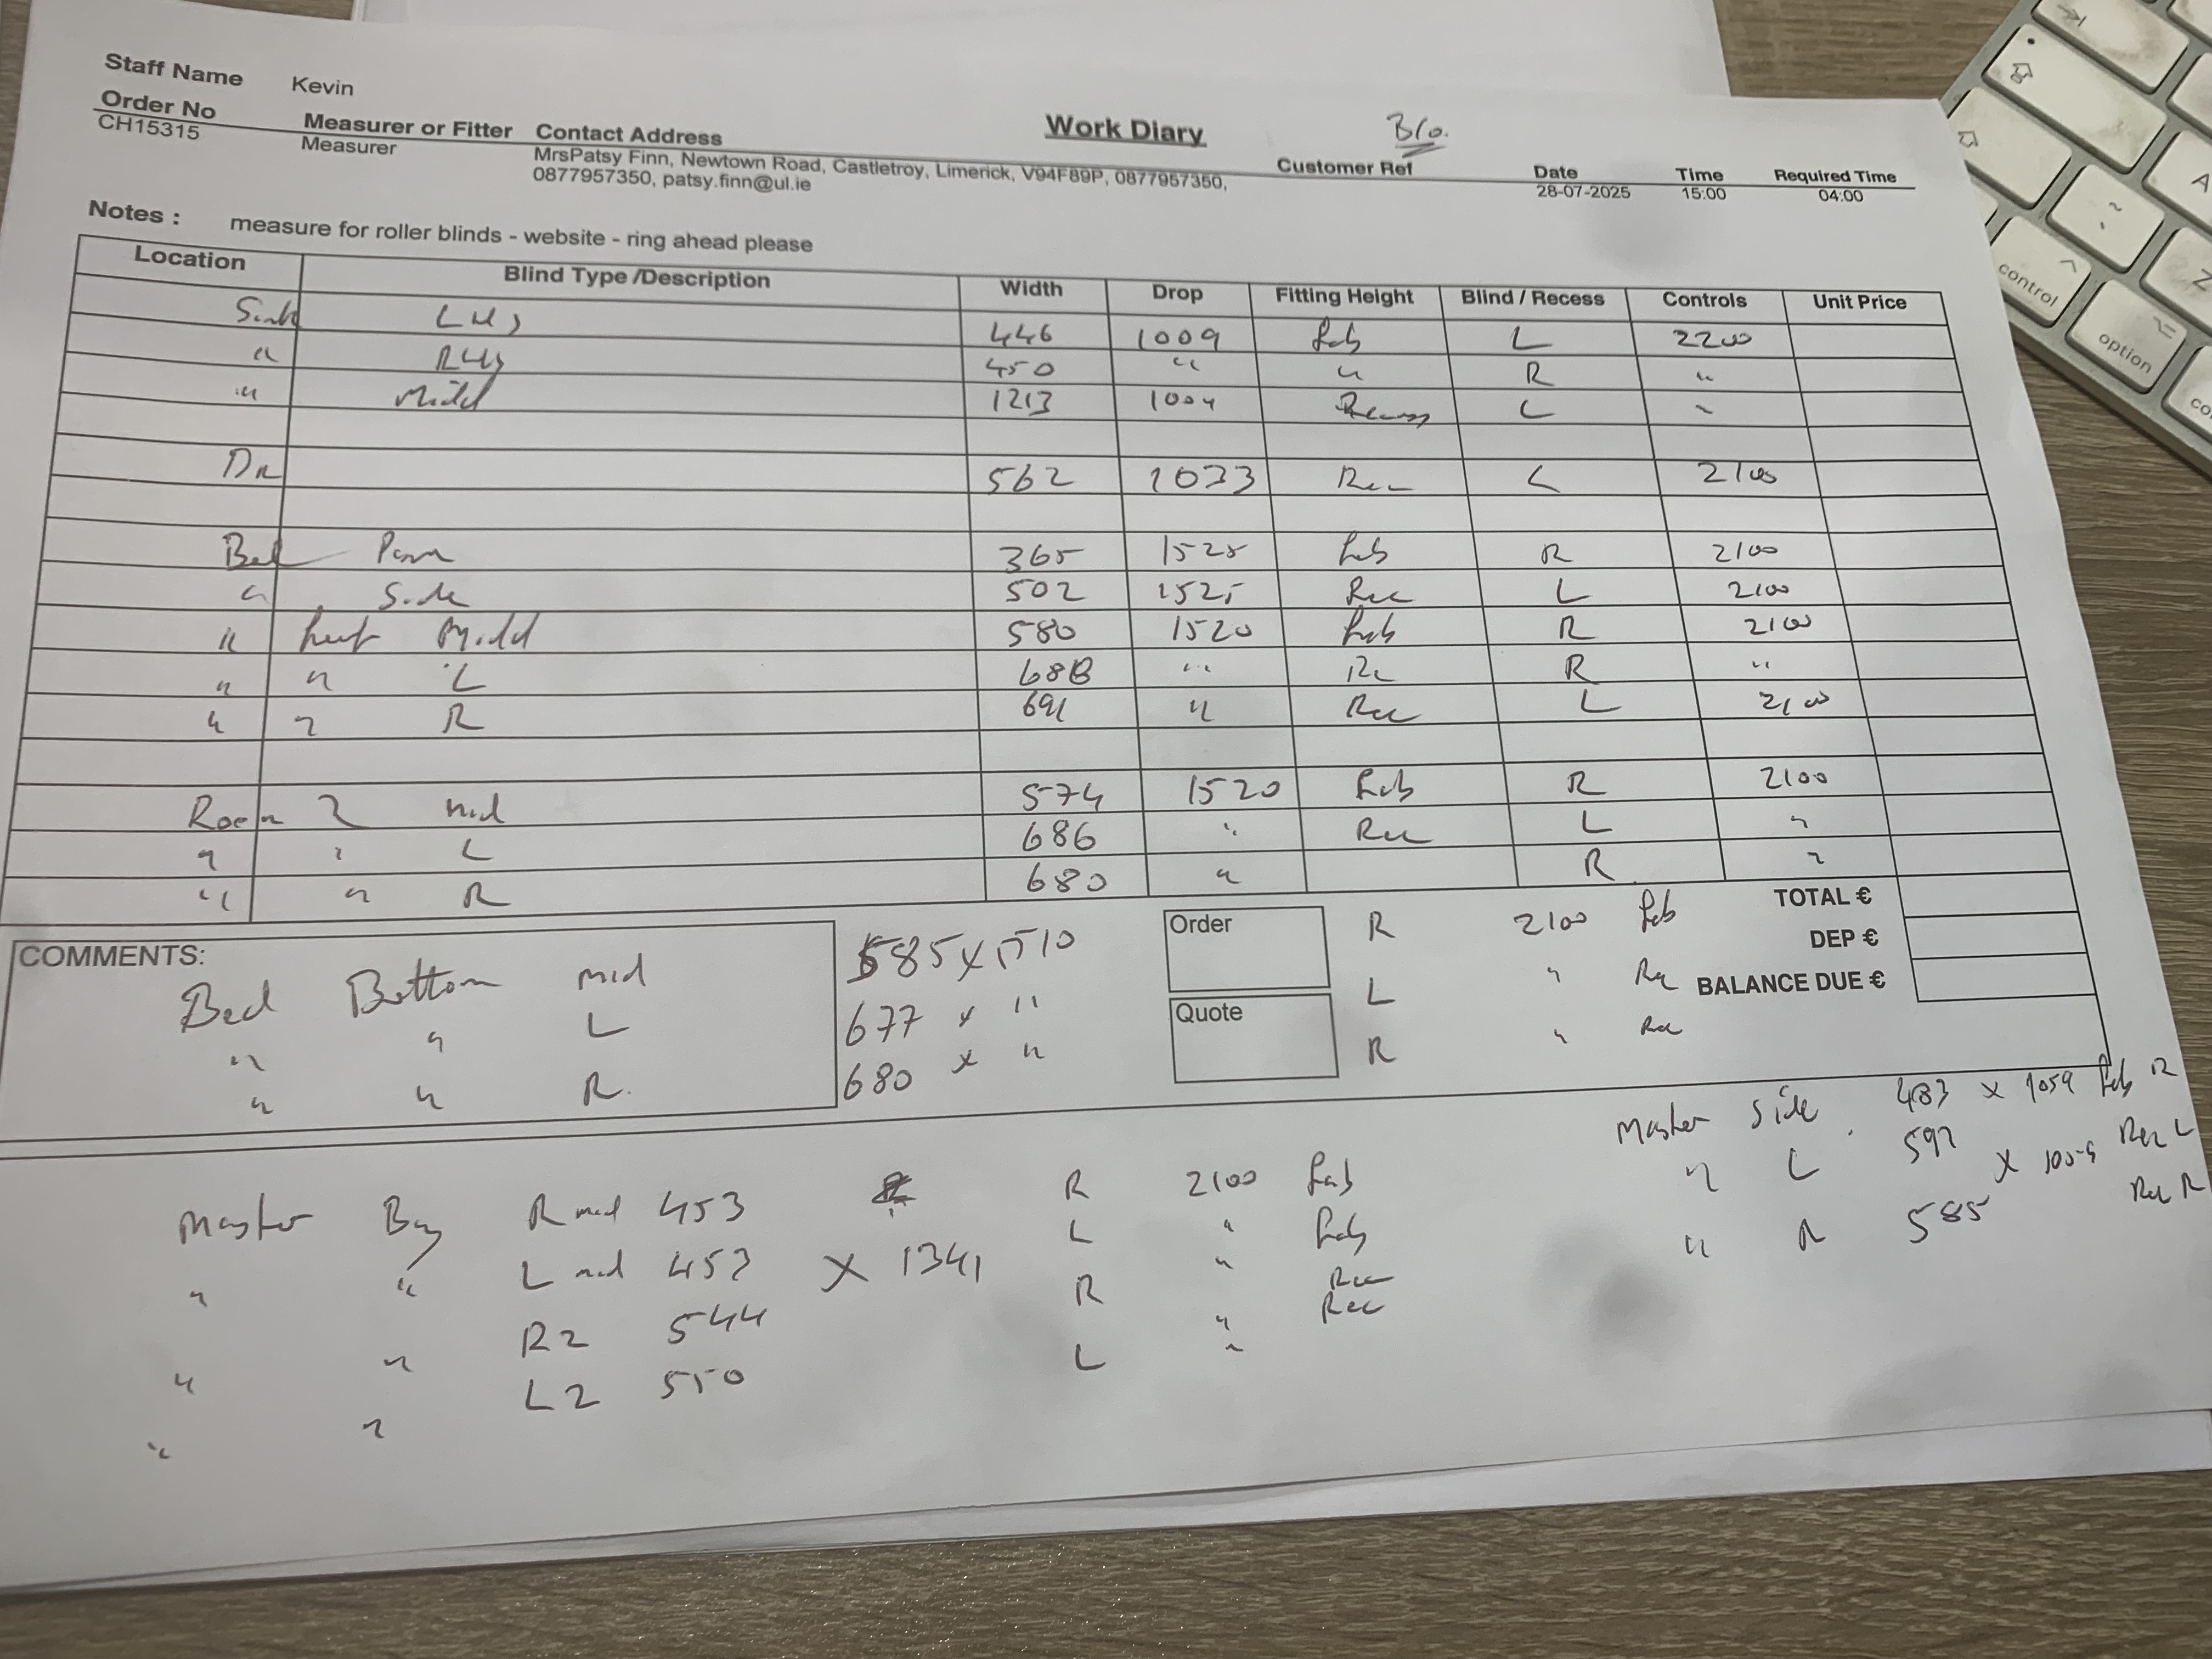 Staff Name Kevin
Work Diary B/o.
Order No Measurer or Fitter Contact Address Customer Ref Date Time Required Time
CH15315 Measurer MrsPatsy Finn, Newtown Road, Castletroy, Limerick, V94F89P, 0877957350, 28-07-2025 15:00 04:00
0877957350, patsy.finn@ul.ie
Notes : measure for roller blinds - website - ring ahead please
Location Blind Type /Description Width Drop Fitting Height Blind / Recess Controls Unit Price
Sink LHS 446 1009 Fab L 2200
" RHS 450 " " R "
" Midd 1213 1004 Recess L "
DR 562 1033 Rec L 2100
Bed 365 1525 Fab R 2100
" Side 502 1525 Rec L 2100
" Midd 580 1520 Fab R 2100
" " L 688 " Rec R "
" " R 691 " Rec L 2100
Room 2 mid 574 1520 Fab R 2100
" " L 686 " Rec L "
" " R 680 " R "
TOTAL €
DEP €
BALANCE DUE €
Order
Quote
COMMENTS:
Bed Bottom mid 585 x 1510 R 2100 Fab
" " L 677 x " L " Rec
" " R. 680 x " R " Rec
Master Side 483 x 1059 Fab R
" L 592 x 1059 Rec L
" R 585 Rec R
Master Bay R mid 453 R 2100 Fab
" " L mid 453 x 1341 L " Fab
" " R2 544 R " Rec
" " L2 550 L " Rec
control
option
A
Z